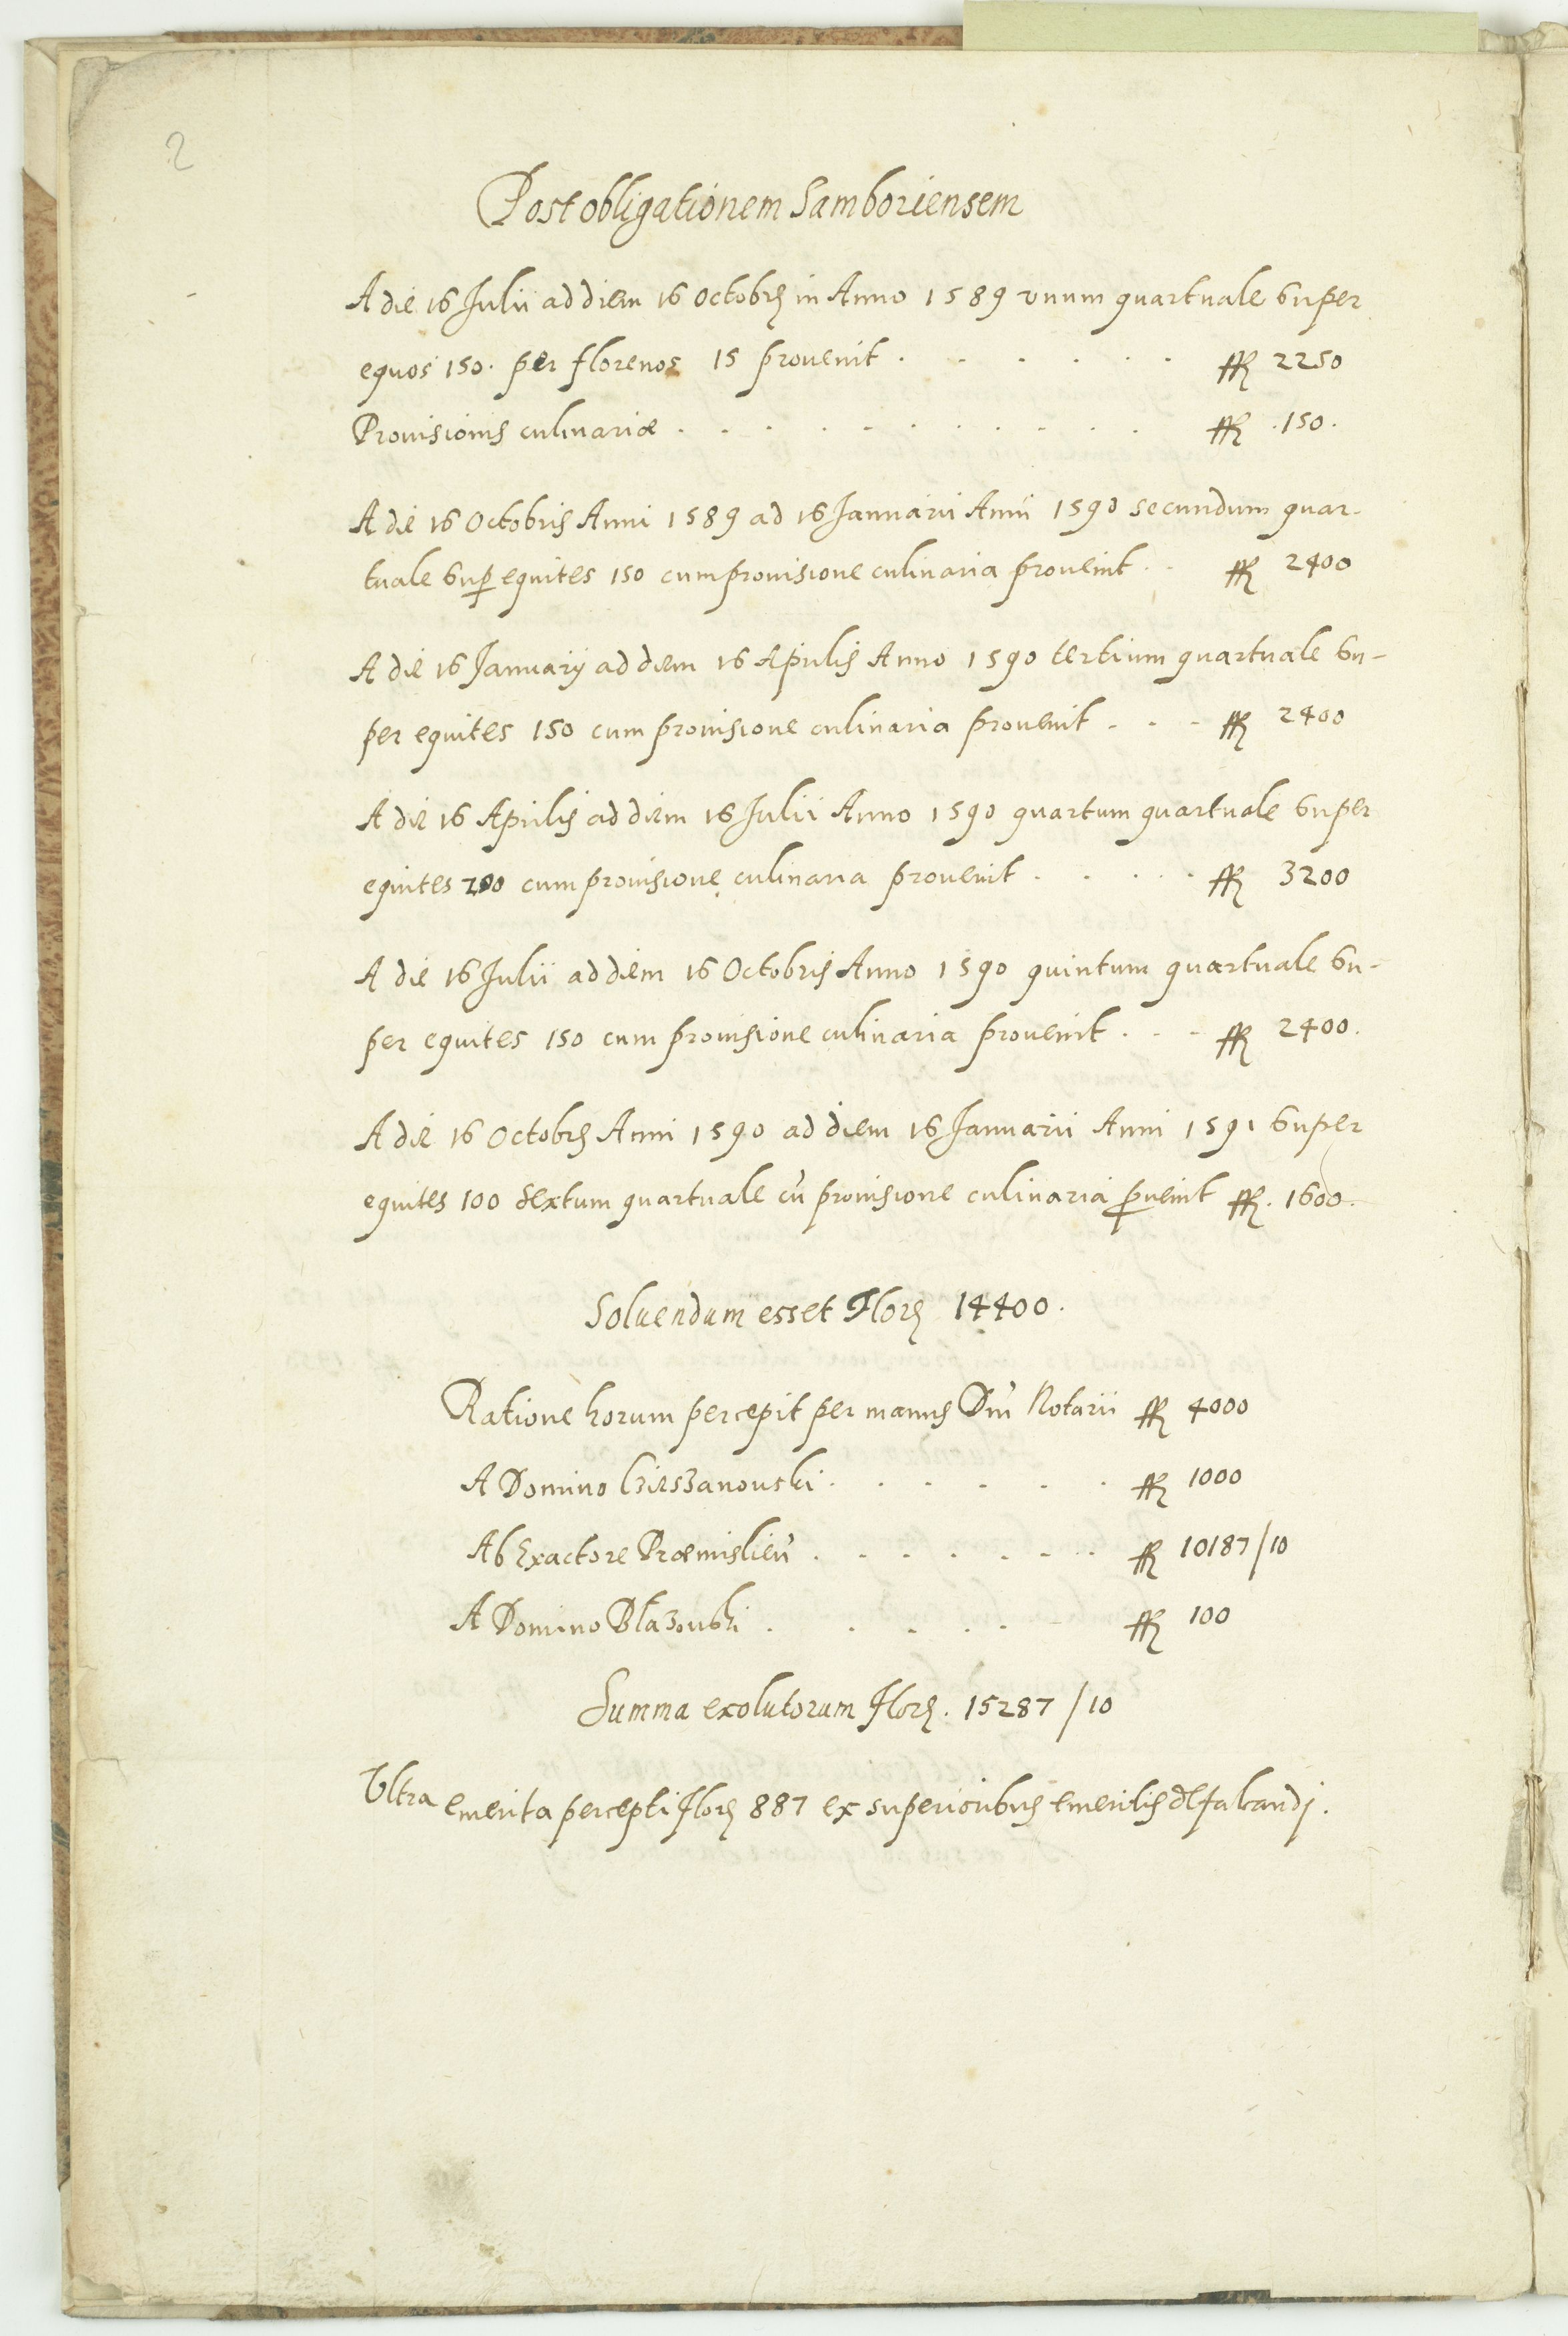 2
Post obligationem Samboriensem
A die 16 Julii ad diem 16 Octobrs in Anno 1589 vnum quartuale super
equos 150. per florenos 15 prouenit . . . . . . ffl 2250
Prouisionis culinariæ . . . . . . . . . . . ffl .150.
A die 16 Octobris Anni 1589 ad 16 Januarii Anni 1590 secundum quar-
tuale sup equites 150 cum prouisione culinaria prouenit . . ffl 2400
A die 16 Januarij ad diem 16 Aprilis Anno 1590 tertium quartuale su-
per equites 150 cum prouisione culinaria prouenit . . . ffl 2400
A die 16 Aprilis ad diem 16 Julii Anno 1590 quartum quartuale super
equites 200 cum prouisione culinaria prouenit . . . . . ffl 3200
A die 16 Julii ad diem 16 Octobris Anno 1590 quintum quartuale su-
per equites 150 cum prouisione culinaria prouenit . . . ffl 2400.
A die 16 Octobrs Anni 1590 ad diem 16 Januarii Anni 1591 super
equites 100 sextum quartuale cū prouisione culinaria puenit ffl. 1600.
Soluendum esset Flors 14400.
Ratione horum percepit per manus Dni Notarii ffl 4000
A Domino Cieszanouski . . . . . . . ffl 1000
Ab Exactore Præmislien . . . . . . . ffl 10187/10
A Domino Błazouski . . . . . . ffl 100
Summa exolutorum flors. 15287/10
Vltra emerita percepti flors 887 ex superioribus emeritis defalcandj.